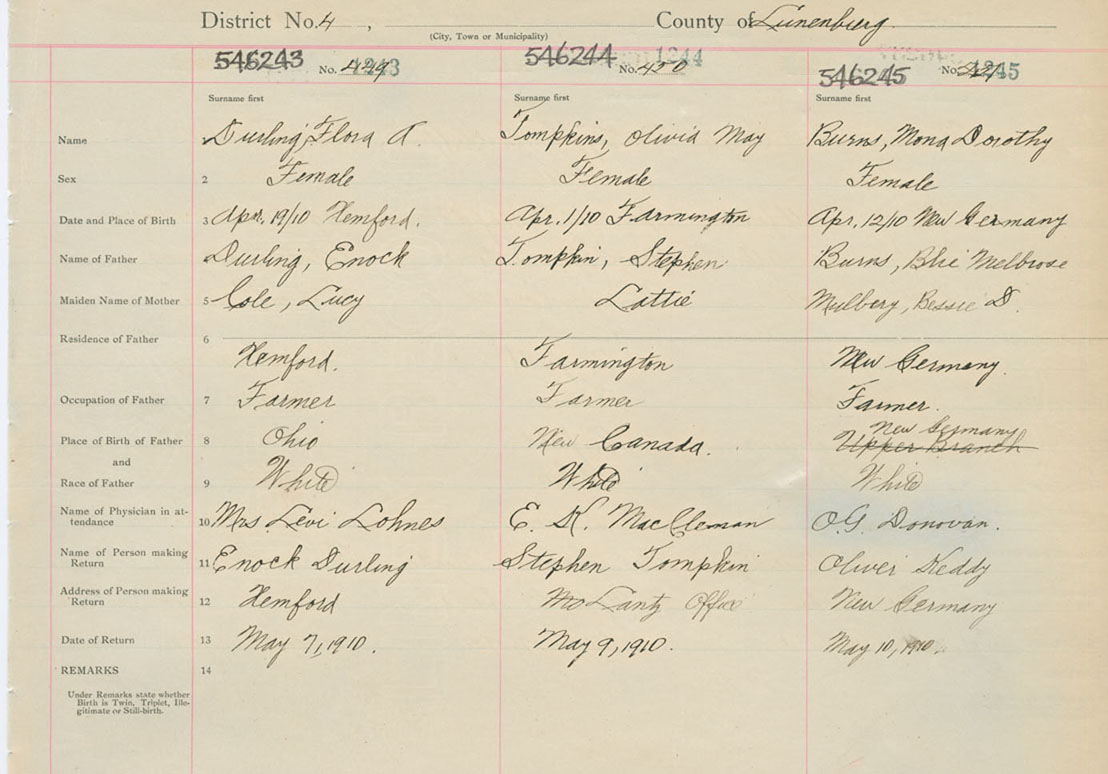 District No. 4 , County of Lunenburg.
(City, Town or Municipality)
546243 No. 449 1243 546244 No. 450 1244 546245 No. 1245
Surname first Surname first Surname first
Name Durling, Flora A. Tompkins, Olivia May Burns, Mona Dorothy
Sex 2 Female Female Female
Date and Place of Birth 3 Apr. 19/10 Hemford. Apr. 1/10 Farmington Apr. 12/10 New Germany
Name of Father Durling, Enock Tompkin, Stephen Burns, Melbrose
Maiden Name of Mother 5 Cole, Lucy Lottie Mulbery, Bessie D.
Residence of Father 6
Hemford. Farmington New Germany.
Occupation of Father 7 Farmer Farmer Farmer.
New Germany
Place of Birth of Father 8 Ohio New Canada. Upper Branch
and
Race of Father 9 White White White
Name of Physician in at-
tendance 10 Mrs Levi Lohnes E. K. MacCleman O.G. Donovan.
Name of Person making
Return 11 Enock Durling Stephen Tompkin Oliver Keddy
Address of Person making
Return 12 Hemford Office New Germany
Date of Return 13 May 7, 1910. May 9, 1910. May 10, 1910.
REMARKS 14
Under Remarks state whether
Birth is Twin, Triplet, Ille-
gitimate or Still-birth.